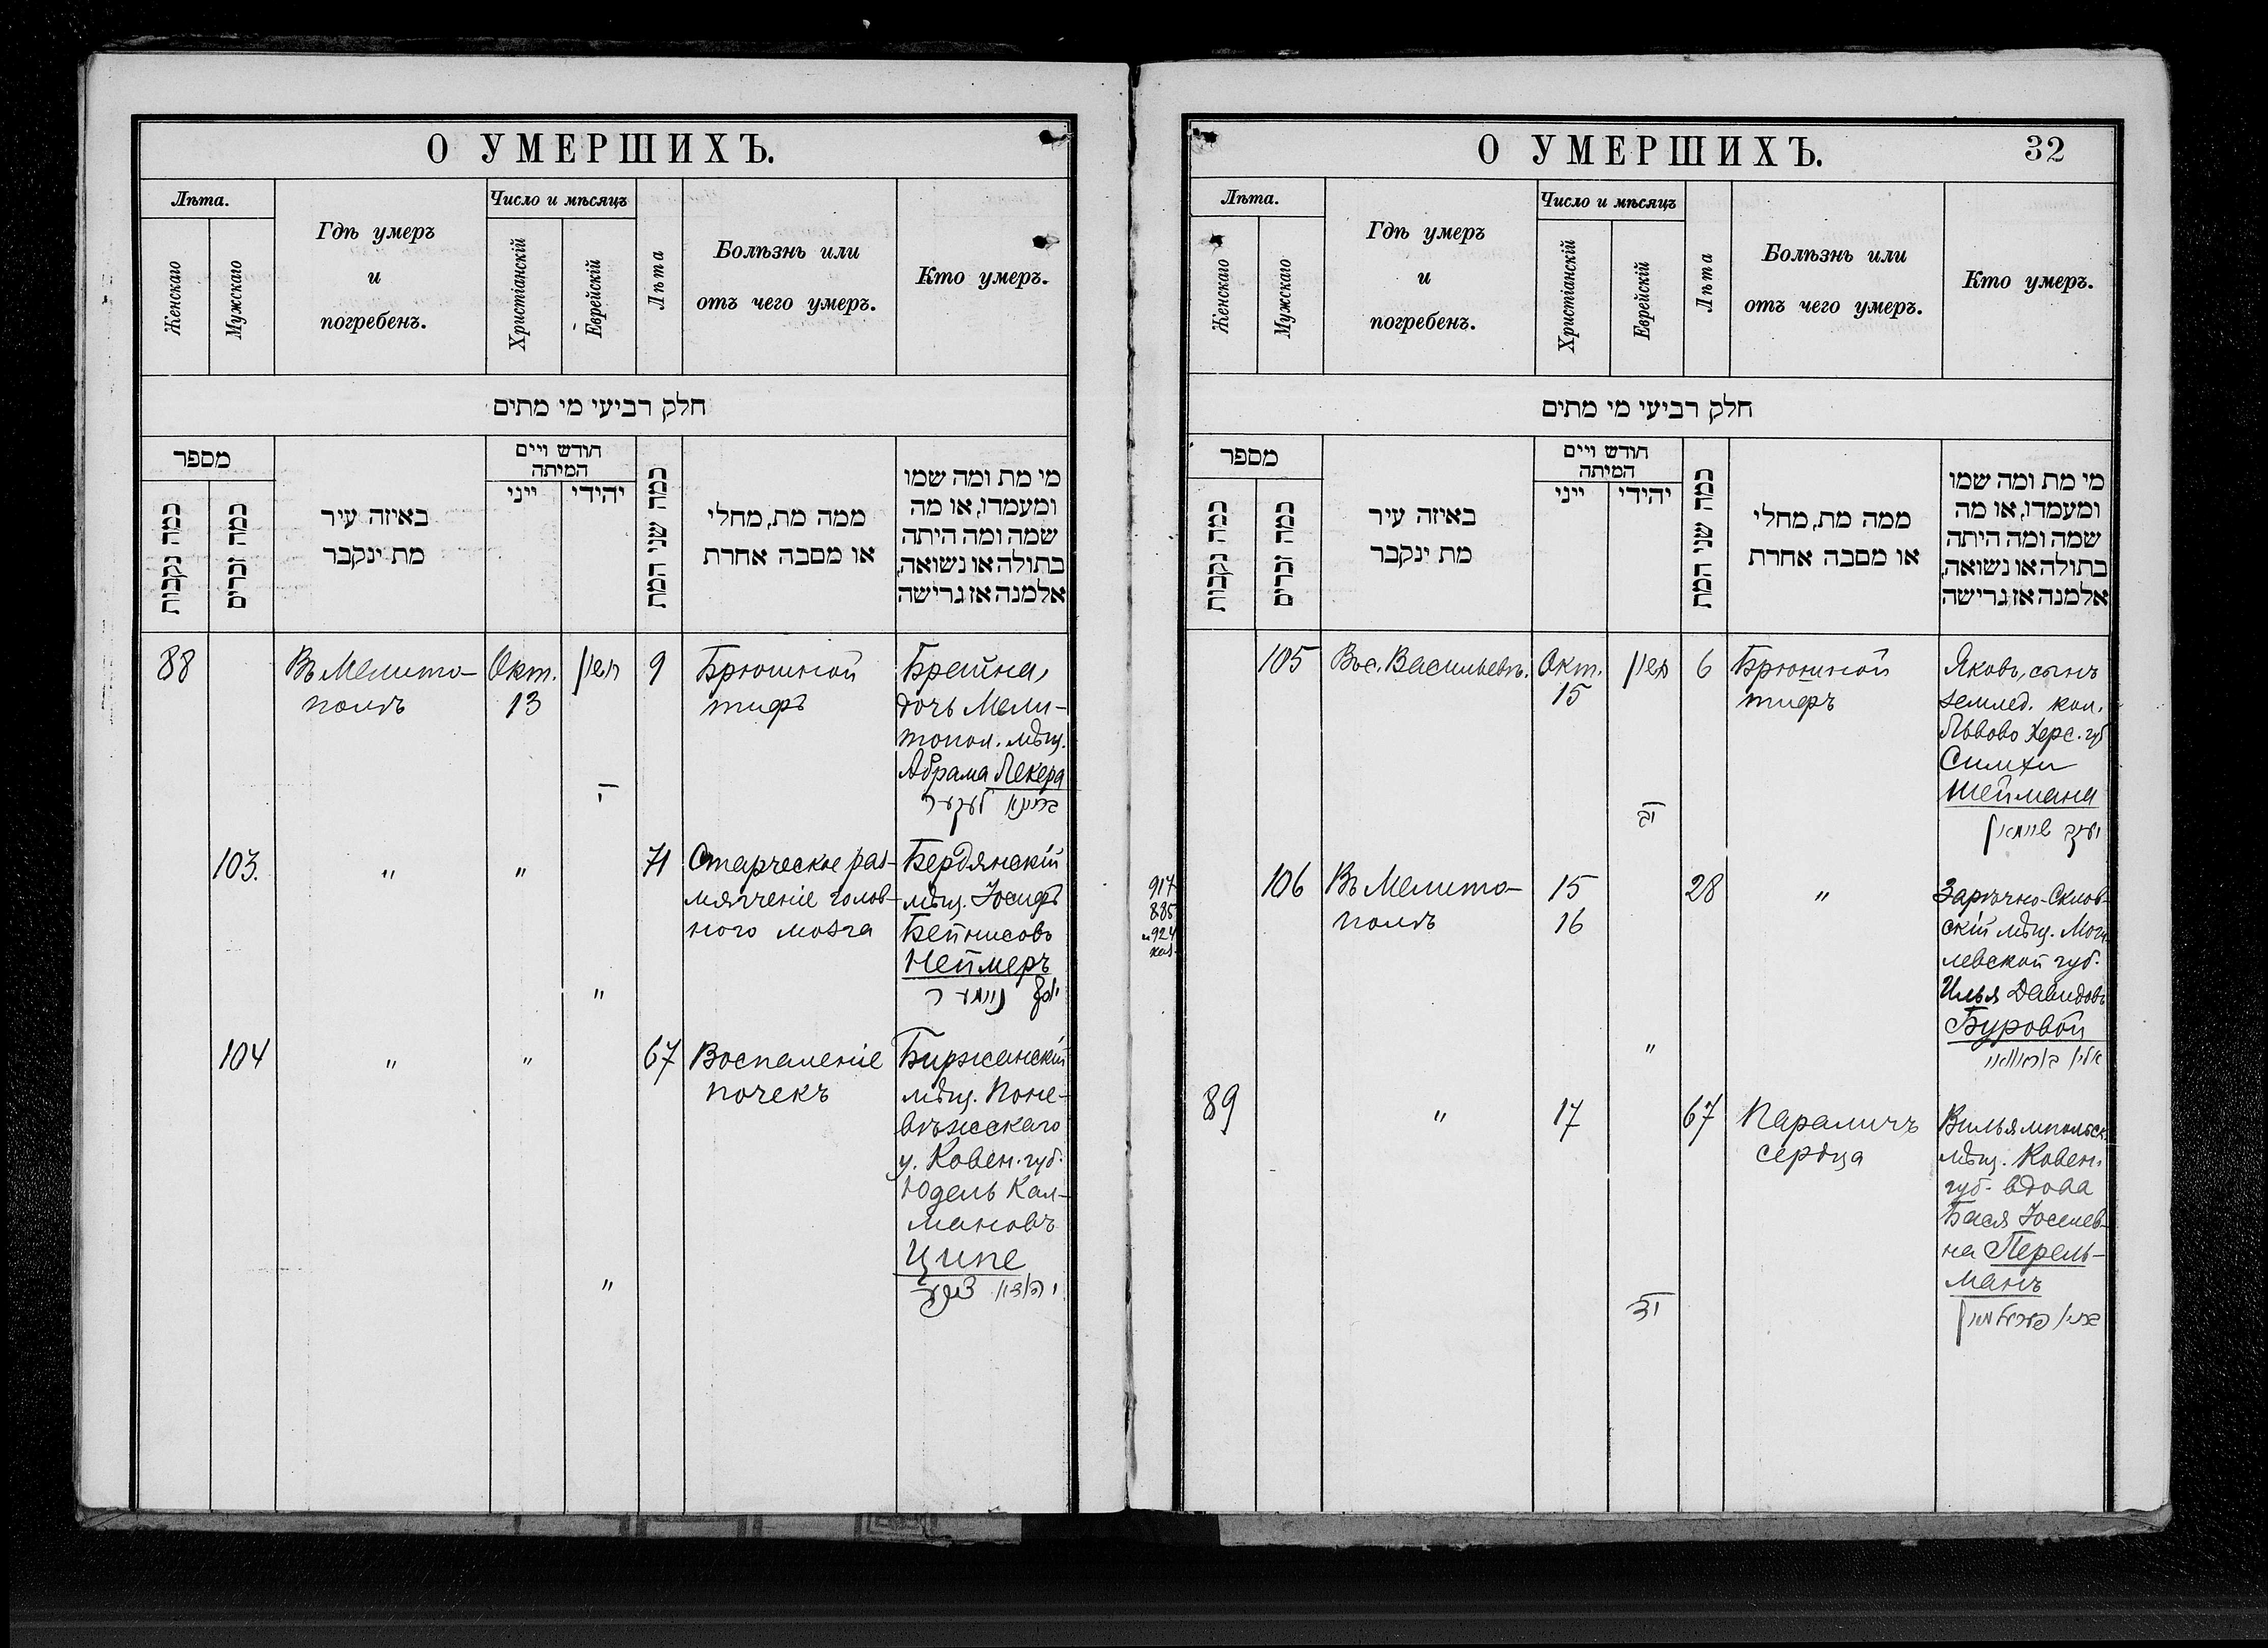 О УМЕРШИХЪ.
Лѣта.
Женскаго
Мужскаго
Гдѣ умеръ
и
погребенъ.
Число и мѣсяцъ
Христіанскій
Еврейскій
Лѣта
Болѣзнь или
отъ чего умеръ.
Кто умеръ.
חלק רביעי מי מתים
מספר
כמה נקבות
כמה זכרים
באיזה עיר
מת ינקבר
חודש ויים
המיתה
ייני
יהודי
כמה שני המת
ממה מת, מחלי
או מסבה אחרת
מי מת ומה שמו
ומעמדו, או מה
שמה ומה היתה
בתולה או נשואה,
אלמנה אז גרישה
88
Въ Мелито-
полѣ
Окт.
13
חשון
ה
9
Брюшной
тифъ
Брайна,
дочь Мели-
топол. мѣщ.
Абрама Лекера
בריינא לעקער
103.
"
"
"
71
Старческое раз-
мягченіе голов-
ного мозга
Бердянскій
мѣщ. Іосифъ
Бейнисовъ
Неймеръ
יוסף ניימער
104
"
"
"
67
Воспаленіе
почекъ
Биржанскій
мѣщ. Поне-
вѣжскаго
у. Ковен. губ.
Юдель Кал-
мановъ
Ципе
ציפע
О УМЕРШИХЪ.
32
Лѣта.
Женскаго
Мужскаго
Гдѣ умеръ
и
погребенъ.
Число и мѣсяцъ
Христіанскій
Еврейскій
Лѣта
Болѣзнь или
отъ чего умеръ.
Кто умеръ.
חלק רביעי מי מתים
מספר
כמה נקבות
כמה זכרים
באיזה עיר
מת ינקבר
חודש ויים
המיתה
ייני
יהודי
כמה שני המת
ממה מת, מחלי
או מסבה אחרת
מי מת ומה שמו
ומעמדו, או מה
שמה ומה היתה
בתולה או נשואה,
אלמנה אז גרישה
105
Вос. Васильевк.
Окт.
15
חשון
6
Брюшной
тифъ
Яковъ, сынъ
землед. кол.
Львово Херс. губ
Симхи
Шеймана
יעקב שיימאן
917
885
и 924
106
Въ Мелито-
полѣ
15
16
"
28
"
Зарѣчно-
скій мѣщ. Моги-
левской губ.
Илья Давидовъ
Буровой
89
"
17
67
Параличъ
сердца
Вильямпольск.
мѣщ. Ковен.
губ. вдова
Бася Іоселев-
на Перель-
манъ
פערעלמאן